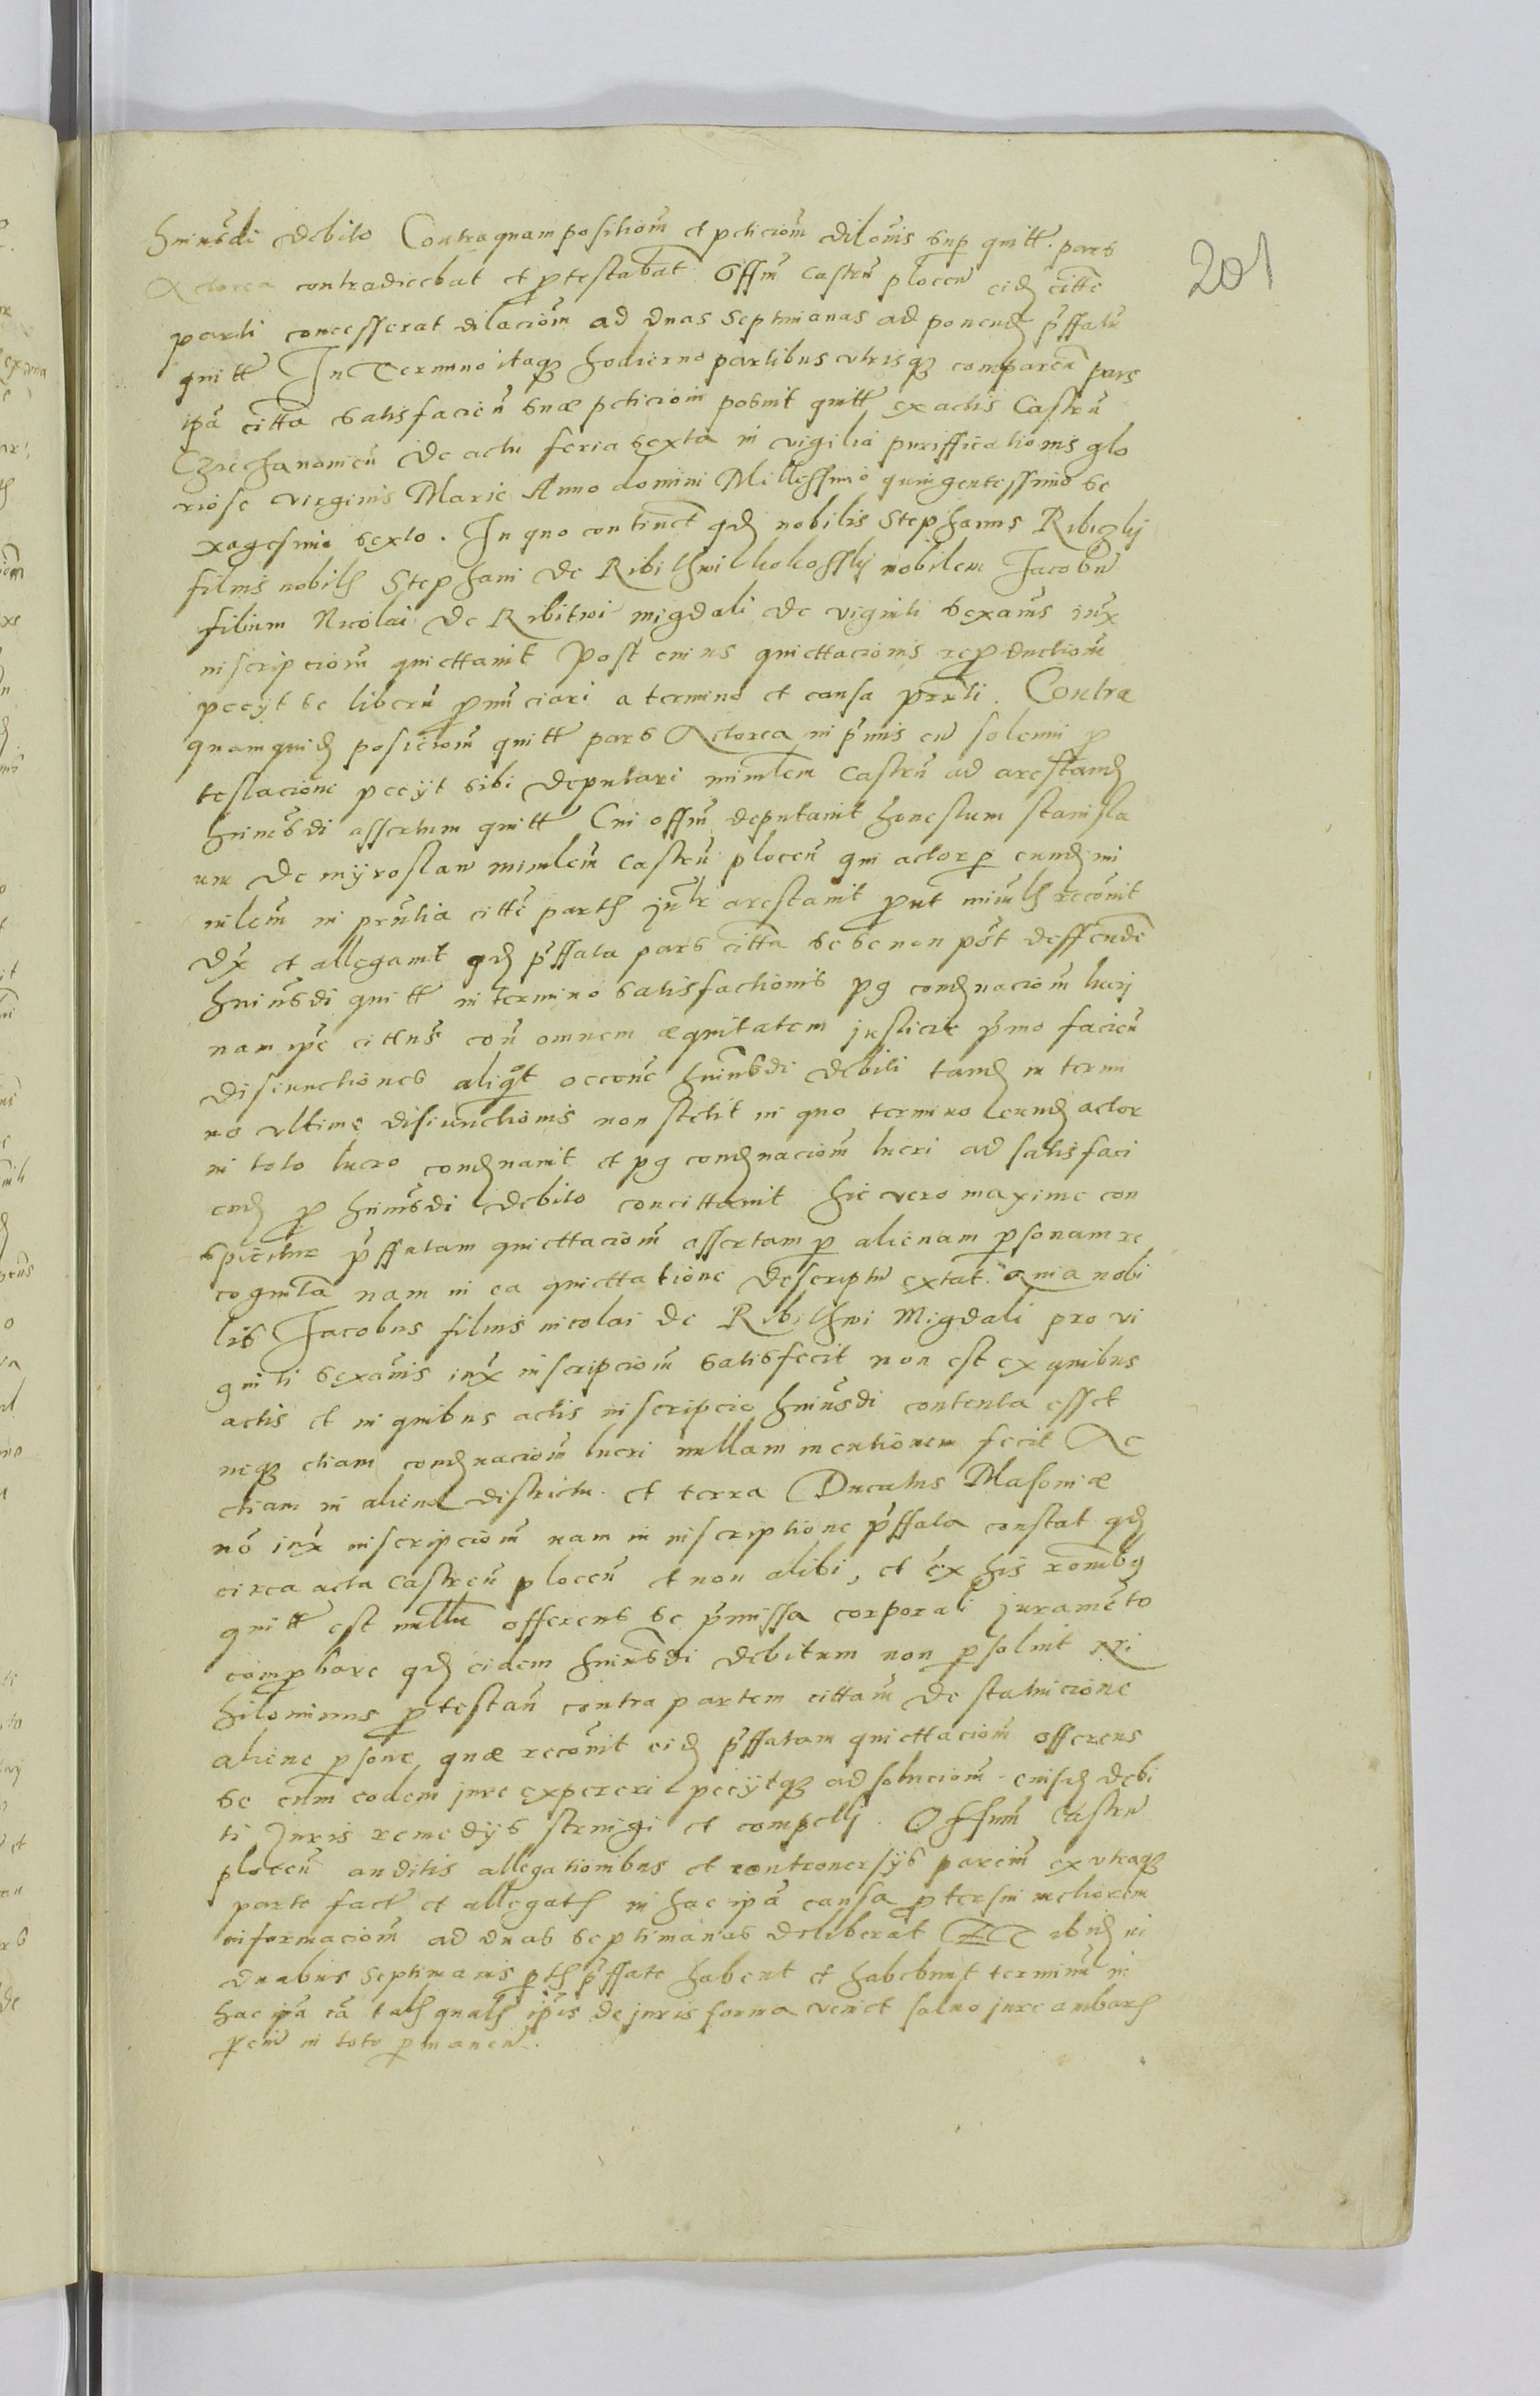 201
huiusdi debito Contra quam positiom et peticiom dilonis sup quitt. pars
Actorea contradicebat et ptestabat Offm Castrn plocen eid citte
parti concesserat dilaciom ad duas septimanas ad ponend pffatu
quitt In Termino itaq hodierno partibus vtrisq comparen pars
ipa citta satisfacien suæ peticioni posuit quitt ex actis Castrn
Czyechanowien de actu feria sexta in vigilia puriffiationis glo
riose virginis Marie Anno domini Millessimo quingentessimo se
xagesimo sexto. In quo continet qd nobilis Stephanus Ribiczky
filius nobils Stephani de Ribithwi kokosky nobilem Jacobu
filium Nicolai de Ribitwi migdali de viginti sexanis iux
inscripciom quiettauit post cuius quiettacionis reproductiom
pecyt se liberu pnunciari a termino et causa pnti. Contra
quamquid posiciom quitt pars Actorea in pmis cu solenni p
testacione pecyt sibi deputari minlem castrn ad arestand
huiusdi assertum quitt Cui offm deputauit honestum stanisla
um de myroslaw minlem Castrn plocen qui actor p eund mi
nilem in pntia citte parts jntr arestauit put minls recouit
dx et allegauit qd pffata pars citta se se non pot deffende
huiusdi quitt in termino satisfactionis pg condnaciom lucri
nam ipe cittus con omnem æquitatem justicie pmo facien
disiunctiones aliqt occone huiusdi debiti tand in termi
no vltime disiunctionis non stetit in quo termino eund actor
in toto lucro condnauit et pg condnaciom lucri ad satisfaci
end p huiusdi debito concittauit hic vero maxime con
spicitur pffatam quiettaciom assertam p alienam psonam re
cognita nam in ea quiettatione descriptu extat. quia nobi
lis Jacobus filius nicolai de Ribithwi Migdali pro vi
ginti sexanis iux inscripciom satisfecit non est ex quibus
actis et in quibus actis inscripcio huiusdi contenta esset
neq etiam condnaciom lucri nullam mentionem fecit Ac
etiam in alieno districtu et terra Ducatus Masoniæ
no iux inscripciom nam in inscriptione pffata constat qd
circa acta castren plocen et non alibi, et ex his romibg
quitt est nullu offerens se pmissa corporali juramento
compbare qd eidem huiusdi debitum non psoluit Ni
hilominus ptestan contra partem cittam de statuicione
aliene psone, quæ recouit eid pffatam quiettaciom offerens
se cum eodem jure expereri pecytq ad soluciom eiusd debi
ti Juris remedys stringi et compelly. Offium Castrn
plocen auditis allegationibus et controuersys parcim ex vtraq
parte fact et allegats in hac ipa causa ptersui meliorem
informaciom ad duas septimanas deliberat ibid in
duabus septimanis pts pffate habent et habebunt terminu in
hac ipa ca tals quals ipis de juris forma venict saluo jure ambars
pciu in toto pmanen.